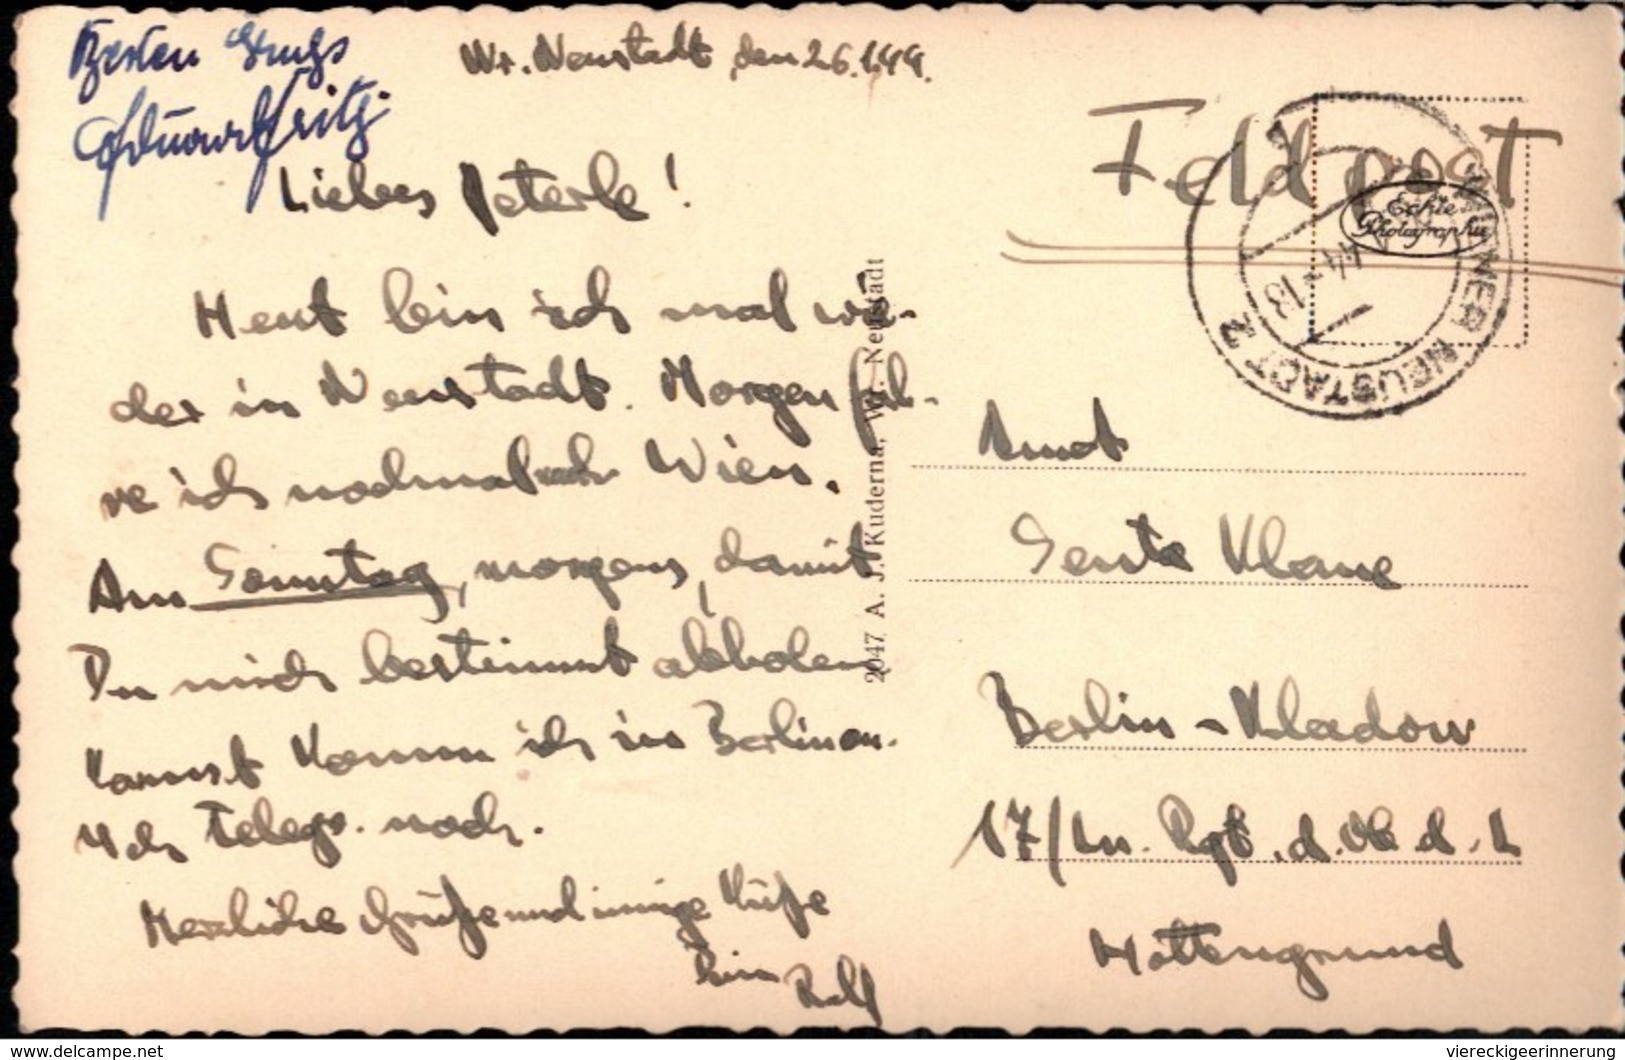 Besten Gruß
Eduard Fritz
Wr. Neustadt, den 26.1.44.
Liebes Peterle!
Heut bin ich mal wie-
der in Neustadt. Morgen fah-
re ich nochmal nach Wien.
Am Sonntag, morgens, damit
Du mich bestimmt abholen
kannst komm ich in Berlin an.
Ich telegr. noch.
Herzliche Grüße und innige Küße
Dein Rolf
2047 A. J. Kuderna, Wr. Neustadt
Feldpost
Echte
Photographie
WIENER NEUSTADT 2
44-18
Senta Klaue
Berlin-Kladow
17/Ln. Rgt. d. Ob. d. L
Hottengrund
delcampe.net
viereckigeerinnerung